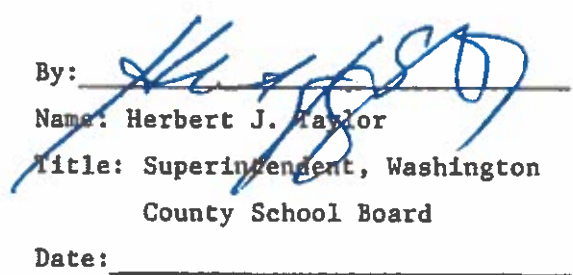 By:
Name: Herbert J. Taylor
Title: Superintendent, Washington
County School Board
Date: